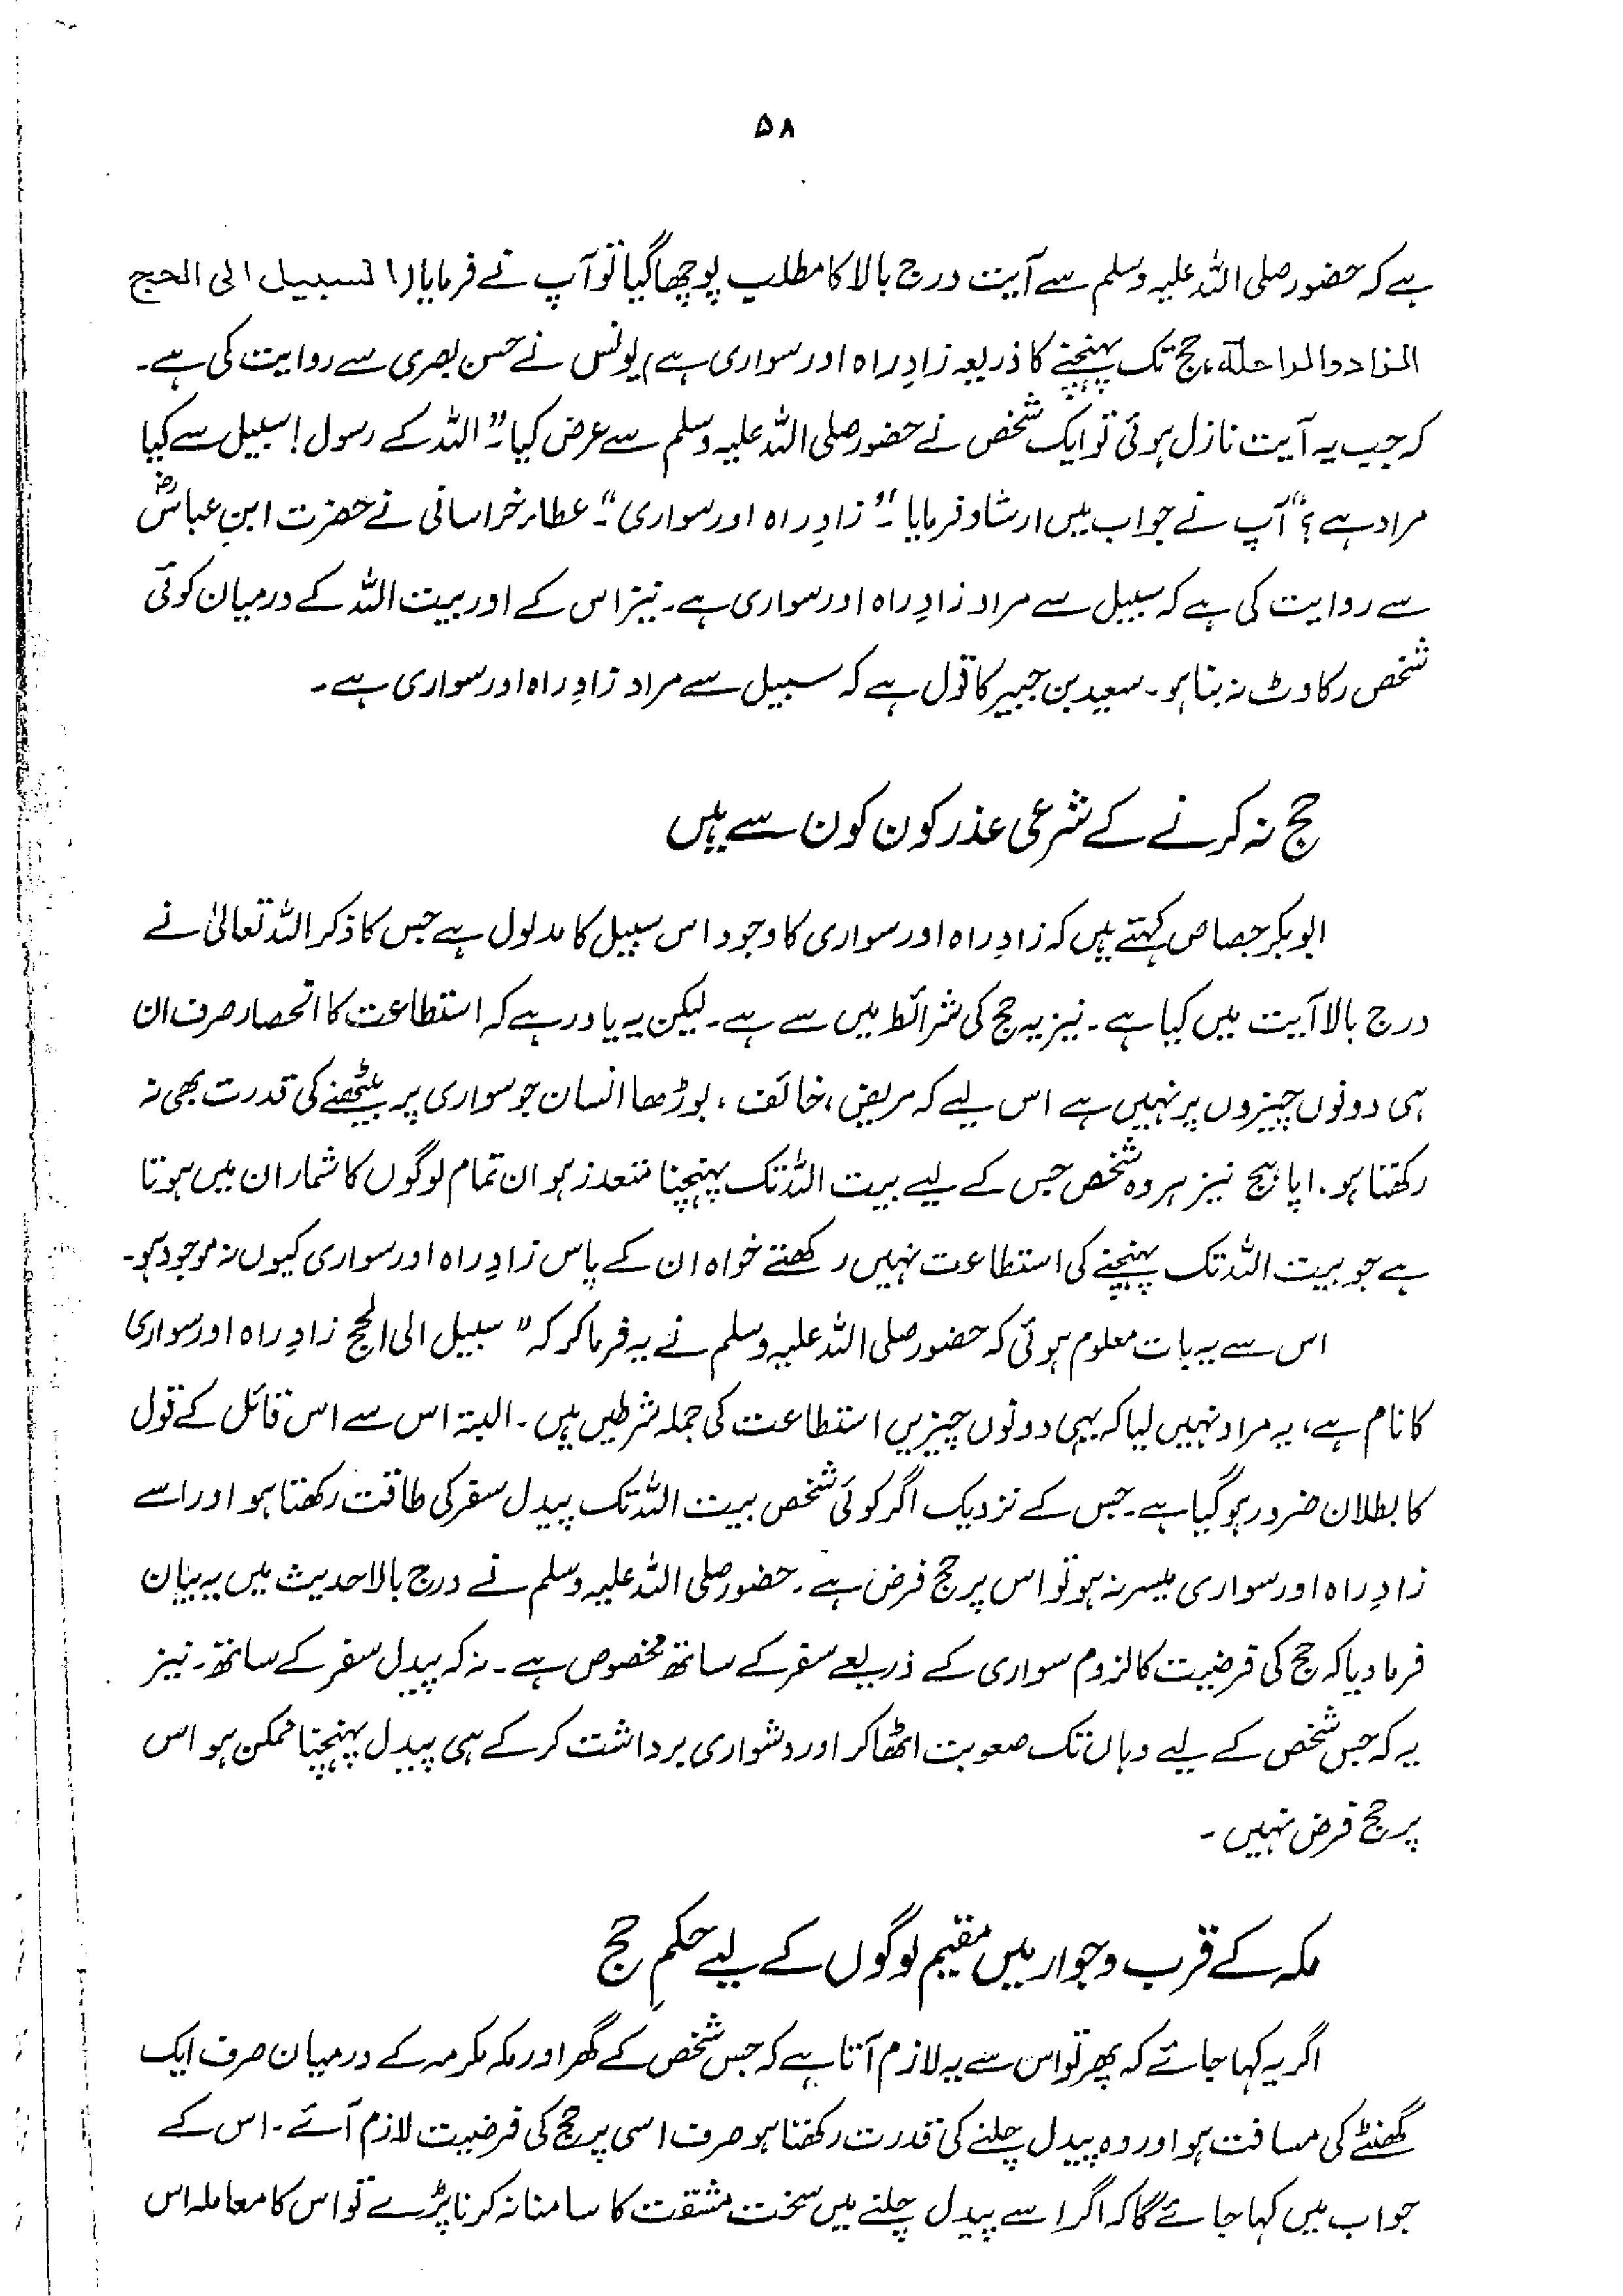 ۵۸
ہے کہ حضور صلی اللہ علیہ وسلم سے آیت درج بالا کا مطلب پوچھا گیا تو آپ نے فرمایا (السبیل الی الحج
الزاد والراحلۃ، حج تک پہنچنے کا ذریعہ زادِ راہ اور سواری ہے) یونس نے حسن بصری سے روایت کی ہے۔
کہ جب یہ آیت نازل ہوئی تو ایک شخص نے حضور صلی اللہ علیہ وسلم سے عرض کیا۔ "اللہ کے رسول! سبیل سے کیا
مراد ہے؟" آپ نے جواب میں ارشاد فرمایا۔ "زادِ راہ اور سواری"۔ عطاء خراسانی نے حضرت ابنِ عباسؓ
سے روایت کی ہے کہ سبیل سے مراد زادِ راہ اور سواری ہے۔ نیز اس کے اور بیت اللہ کے درمیان کوئی
شخص رکاوٹ نہ بنا ہو۔ سعید بن جبیر کا قول ہے کہ سبیل سے مراد زادِ راہ اور سواری ہے۔
حج نہ کرنے کے شرعی عذر کون کون سے ہیں
ابوبکر جصاص کہتے ہیں کہ زادِ راہ اور سواری کا وجود اس سبیل کا مدلول ہے جس کا ذکر اللہ تعالیٰ نے
درج بالا آیت میں کیا ہے۔ نیز یہ حج کی شرائط میں سے ہے۔ لیکن یہ یاد رہے کہ استطاعت کا انحصار صرف ان
ہی دونوں چیزوں پر نہیں ہے اس لیے کہ مریض، خائف، بوڑھا انسان جو سواری پر بیٹھنے کی قدرت بھی نہ
رکھتا ہو۔ اپاہج نیز ہر وہ شخص جس کے لیے بیت اللہ تک پہنچنا متعذر ہو ان تمام لوگوں کا شمار ان میں ہوتا
ہے جو بیت اللہ تک پہنچنے کی استطاعت نہیں رکھتے خواہ ان کے پاس زادِ راہ اور سواری کیوں نہ موجود ہو۔
اس سے یہ بات معلوم ہوئی کہ حضور صلی اللہ علیہ وسلم نے یہ فرما کر کہ "سبیل الی الحج زادِ راہ اور سواری
کا نام ہے، یہ مراد نہیں لیا کہ یہی دونوں چیزیں استطاعت کی جملہ شرطیں ہیں۔ البتہ اس سے اس قائل کے قول
کا بطلان ضرور ہو گیا ہے۔ جس کے نزدیک اگر کوئی شخص بیت اللہ تک پیدل سفر کی طاقت رکھتا ہو اور اسے
زادِ راہ اور سواری میسر نہ ہو تو اس پر حج فرض ہے۔ حضور صلی اللہ علیہ وسلم نے درج بالا حدیث میں یہ بیان
فرما دیا کہ حج کی فرضیت کا لزوم سواری کے ذریعے سفر کے ساتھ مخصوص ہے۔ نہ کہ پیدل سفر کے ساتھ۔ نیز
یہ کہ جس شخص کے لیے وہاں تک صعوبت اٹھا کر اور دشواری برداشت کر کے ہی پیدل پہنچنا ممکن ہو اس
پر حج فرض نہیں۔
مکہ کے قرب و جوار میں مقیم لوگوں کے لیے حکمِ حج
اگر یہ کہا جائے کہ پھر تو اس سے یہ لازم آتا ہے کہ جس شخص کے گھر اور مکہ مکرمہ کے درمیان صرف ایک
گھنٹے کی مسافت ہو اور وہ پیدل چلنے کی قدرت رکھتا ہو صرف اسی پر حج کی فرضیت لازم آئے۔ اس کے
جواب میں کہا جائے گا کہ اگر اسے پیدل چلنے میں سخت مشقت کا سامنا نہ کرنا پڑے تو اس کا معاملہ اس